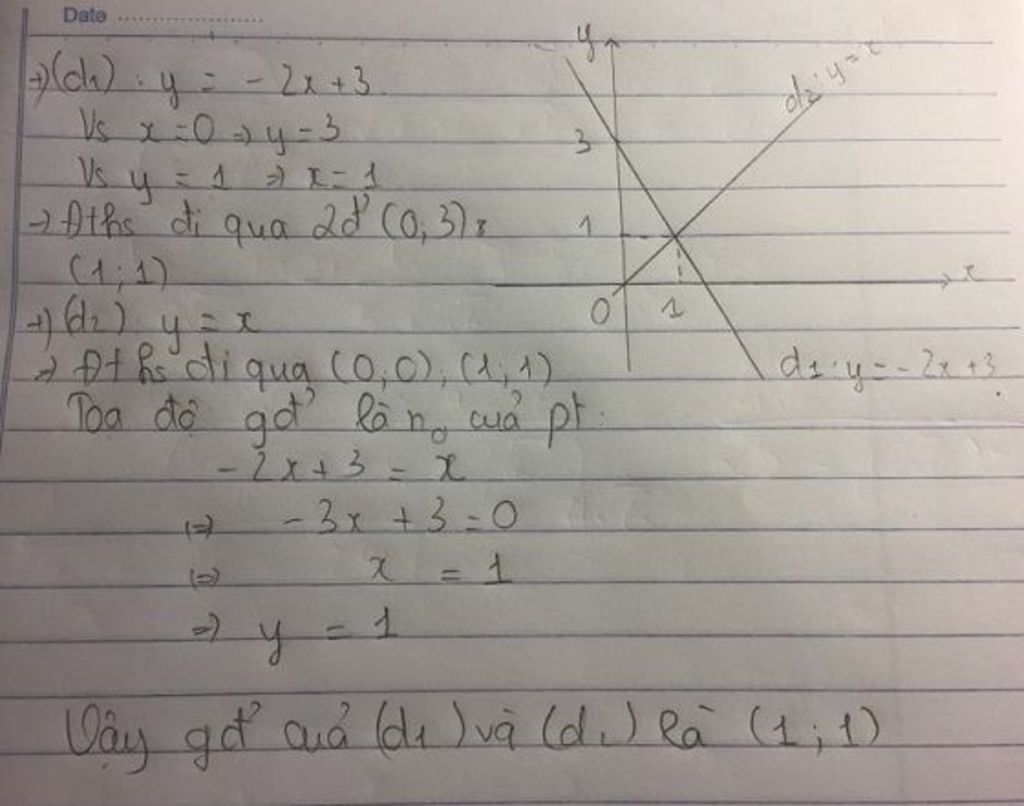 Date
+) (d1): y = -2x+3
Vs x=0 => y=3
Vs y = 1 => x=1
-> Đths đi qua 2đ' (0,3);
(1;1)
+) (d2) y = x
=> Đths đi qua (0,0), (1,1)
Tọa độ gđ' là no của pt:
-2x+3 = x
<=> -3x +3=0
<=> x = 1
=> y = 1
Vậy gđ' của (d1) và (d2) là (1;1)
y
d2: y = x
3
1
x
0
1
d1: y = -2x +3